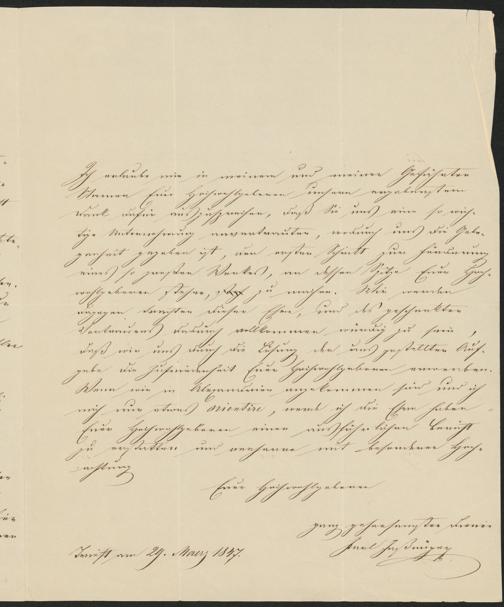 Ich erlaube mir in meinem und meiner Gefährten
Namen Euer Hochwohlgeboren unsern ergebensten
Dank dafür auszusprechen, daß Sie uns eine so wich-
tige Unternehmung anvertrauten, wodurch uns die Gele-
genheit gegeben ist, den ersten Schritt zur Förderung
eines so großen Werkes, an dessen Spitze Euer Hoch-
wohlgeboren stehen, zu machen. Wir werden
dieser Ehre, und des geschenkten
Vertrauens dadurch vollkommen würdig zu sein,
daß wir uns durch die Lösung der uns gestellten Auf-
gabe die Zufriedenheit Euer Hochwohlgeboren erwerben.
Wenn wir in Alexandrien angekommen sind und ich
mich nur etwas orientire, werde ich die Ehre haben
Euer Hochwohlgeboren einen ausführlichen Bericht
zu erstatten und verharre mit besonderer Hoch-
achtung
Euer Hochwohlgeboren
ganz gehorsamster Diener
Karl
Triest am 29. Maerz 1847.